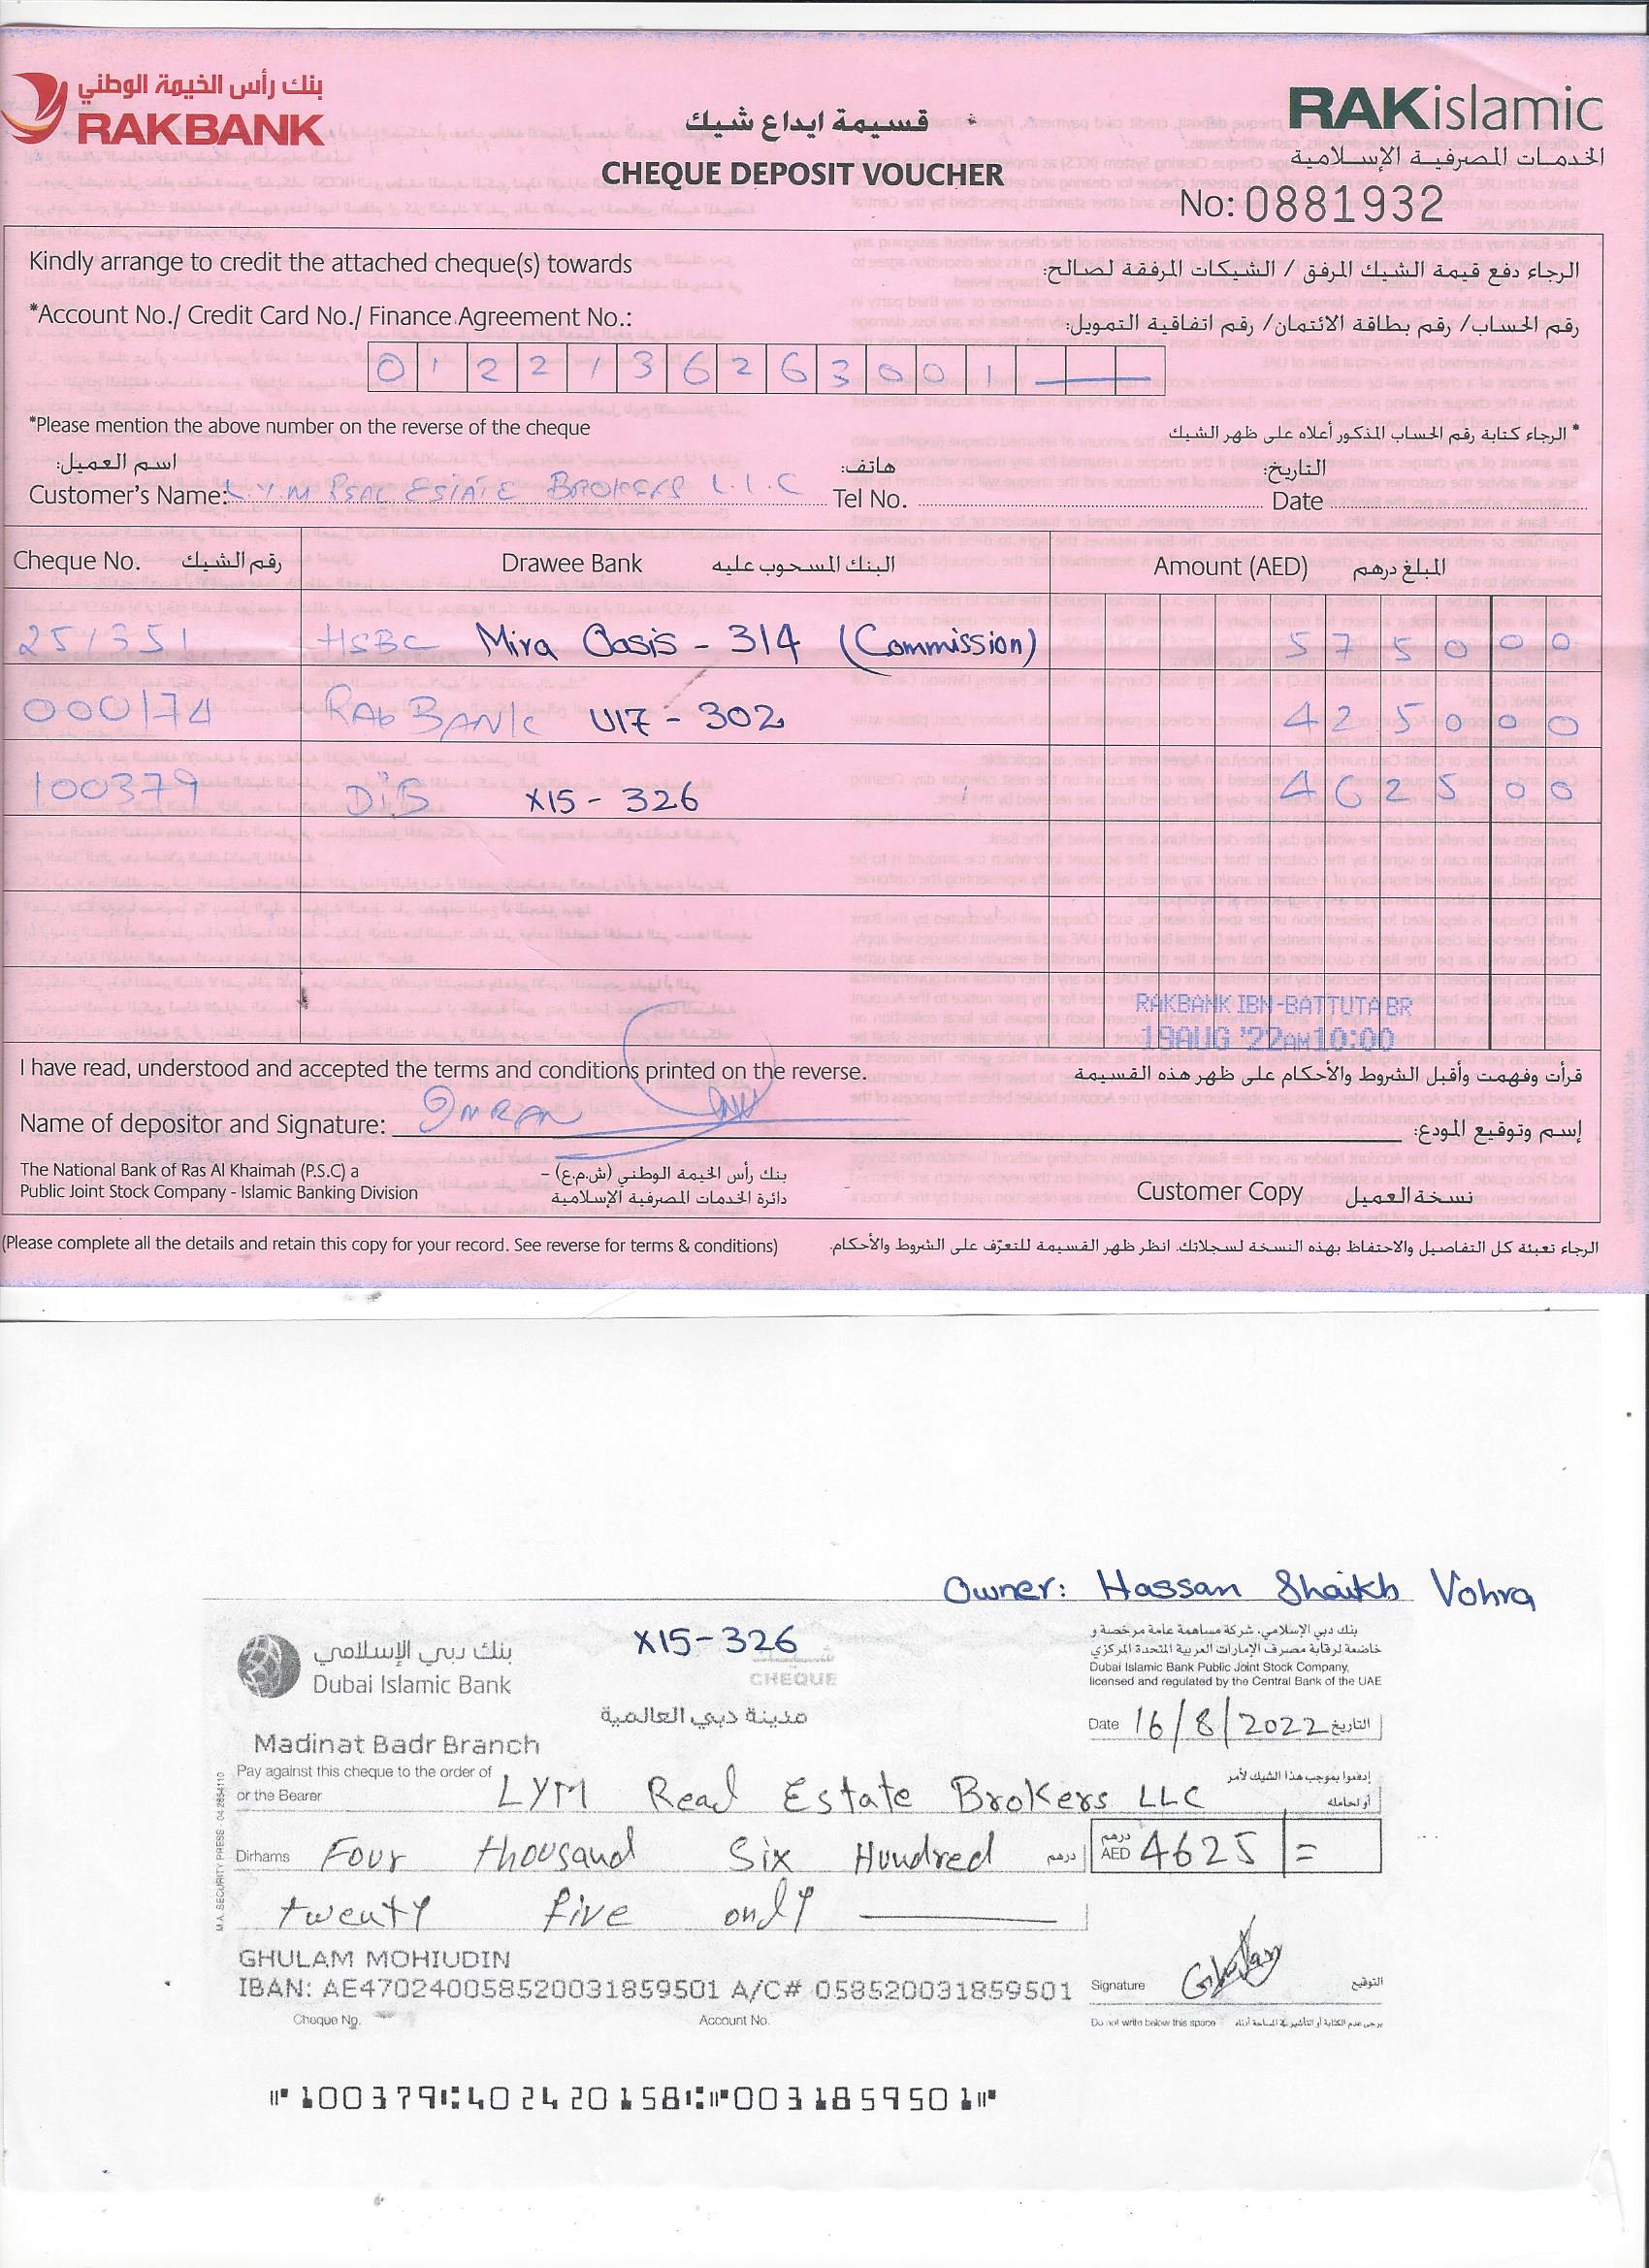 بنك رأس الخيمة الوطني
RAKBANK
قسيمة ايداع شيك
CHEQUE DEPOSIT VOUCHER
RAKislamic
الخدمات المصرفية الإسلامية
No: 0881932
Kindly arrange to credit the attached cheque(s) towards
الرجاء دفع قيمة الشيك المرفق / الشيكات المرفقة لصالح:
*Account No./ Credit Card No./ Finance Agreement No.:
رقم الحساب/ رقم بطاقة الائتمان/ رقم اتفاقية التمويل:
0122136263001
*Please mention the above number on the reverse of the cheque
* الرجاء كتابة رقم الحساب المذكور أعلاه على ظهر الشيك
اسم العميل: هاتف: التاريخ:
Customer's Name: L.Y.M REAL ESTATE BROKERS L.L.C Tel No. Date
Cheque No. رقم الشيك Drawee Bank البنك المسحوب عليه Amount (AED) المبلغ درهم
251351 HSBC Mira Oasis - 314 (Commission) 575000
000174 RAK BANK U17 - 302 425000
100379 DIB X15 - 326 462500
RAKBANK IBN-BATTUTA BR
19AUG '22AM10:00
I have read, understood and accepted the terms and conditions printed on the reverse.
قرأت وفهمت وأقبل الشروط والأحكام على ظهر هذه القسيمة
Name of depositor and Signature: IMRAN إسم وتوقيع المودع:
The National Bank of Ras Al Khaimah (P.S.C) a
Public Joint Stock Company - Islamic Banking Division
بنك رأس الخيمة الوطني (ش.م.ع) -
دائرة الخدمات المصرفية الإسلامية
Customer Copy نسخة العميل
(Please complete all the details and retain this copy for your record. See reverse for terms & conditions)
الرجاء تعبئة كل التفاصيل والاحتفاظ بهذه النسخة لسجلاتك. انظر ظهر القسيمة للتعرّف على الشروط والأحكام.
Owner: Hassan Shaikh Vohra
X15-326
بنك دبي الإسلامي
Dubai Islamic Bank
CHEQUE
بنك دبي الإسلامي، شركة مساهمة عامة مرخصة و
خاضعة لرقابة مصرف الإمارات العربية المتحدة المركزي
Dubai Islamic Bank Public Joint Stock Company,
licensed and regulated by the Central Bank of the UAE
مدينة دبي العالمية
Date 16/8/2022 التاريخ
Madinat Badr Branch
Pay against this cheque to the order of
or the Bearer
LYM Real Estate Brokers LLC
إدفعوا بموجب هذا الشيك لأمر
أو لحامله
Dirhams Four thousand Six Hundred درهم
درهم
AED 4625 =
twenty five only
M.A. SECURITY PRESS - 04 2854110
GHULAM MOHIUDIN
IBAN: AE470240058520031859501 A/C# 058520031859501
Signature التوقيع
Cheque No. Account No.
Do not write below this space
100379 402420158 0031859501